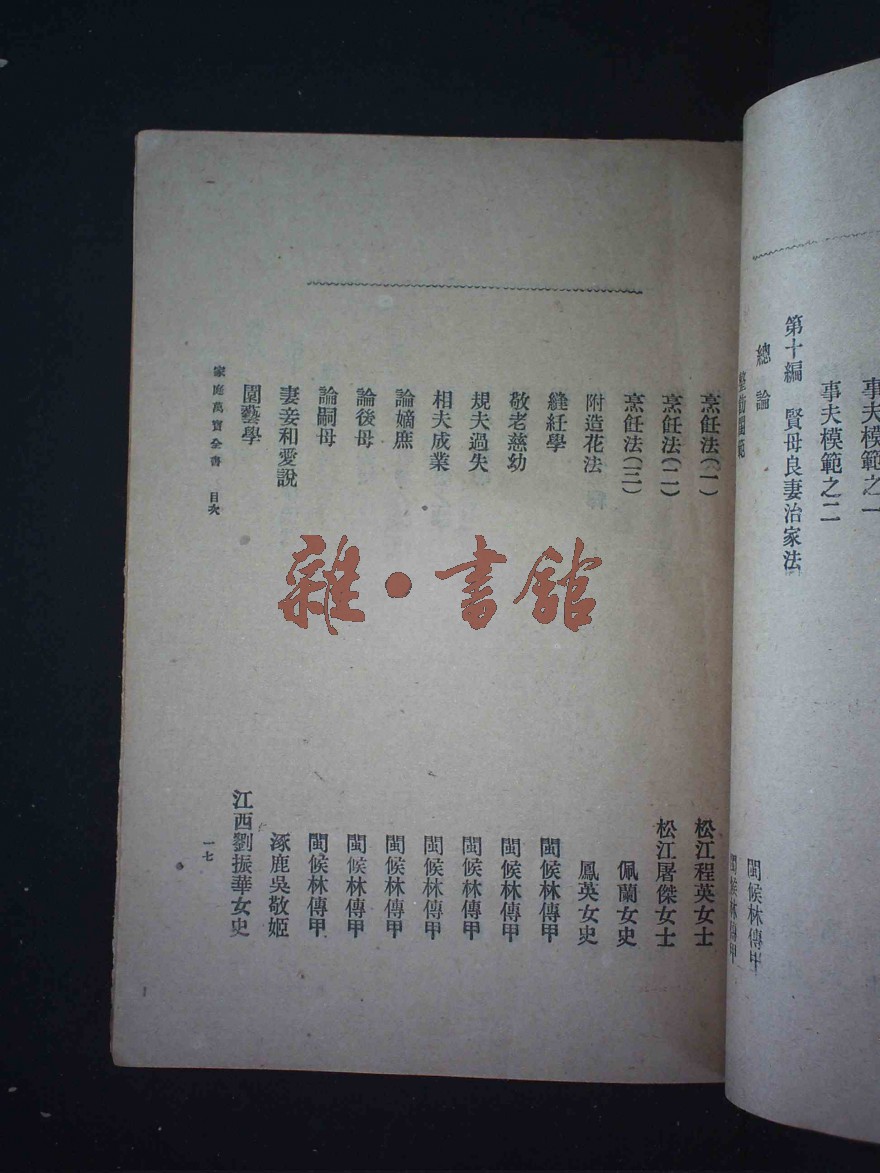 事夫模範之一
事夫模範之二
第十編 賢母良妻治家法
總論 閩候林傳甲
閨範 閩候林傳甲
烹飪法(一) 松江程英女士
烹飪法(二) 松江屠傑女士
烹飪法(三) 佩蘭女史
附造花法 鳳英女史
縫紝學 閩候林傳甲
敬老慈幼 閩候林傳甲
規夫過失 閩候林傳甲
相夫成業 閩候林傳甲
論嫡庶 閩候林傳甲
論後母 閩候林傳甲
論嗣母 閩候林傳甲
妻妾和愛說 涿鹿吳敬姬
園藝學 江西劉振華女史
家庭萬寶全書 目次 一七
雜·書館